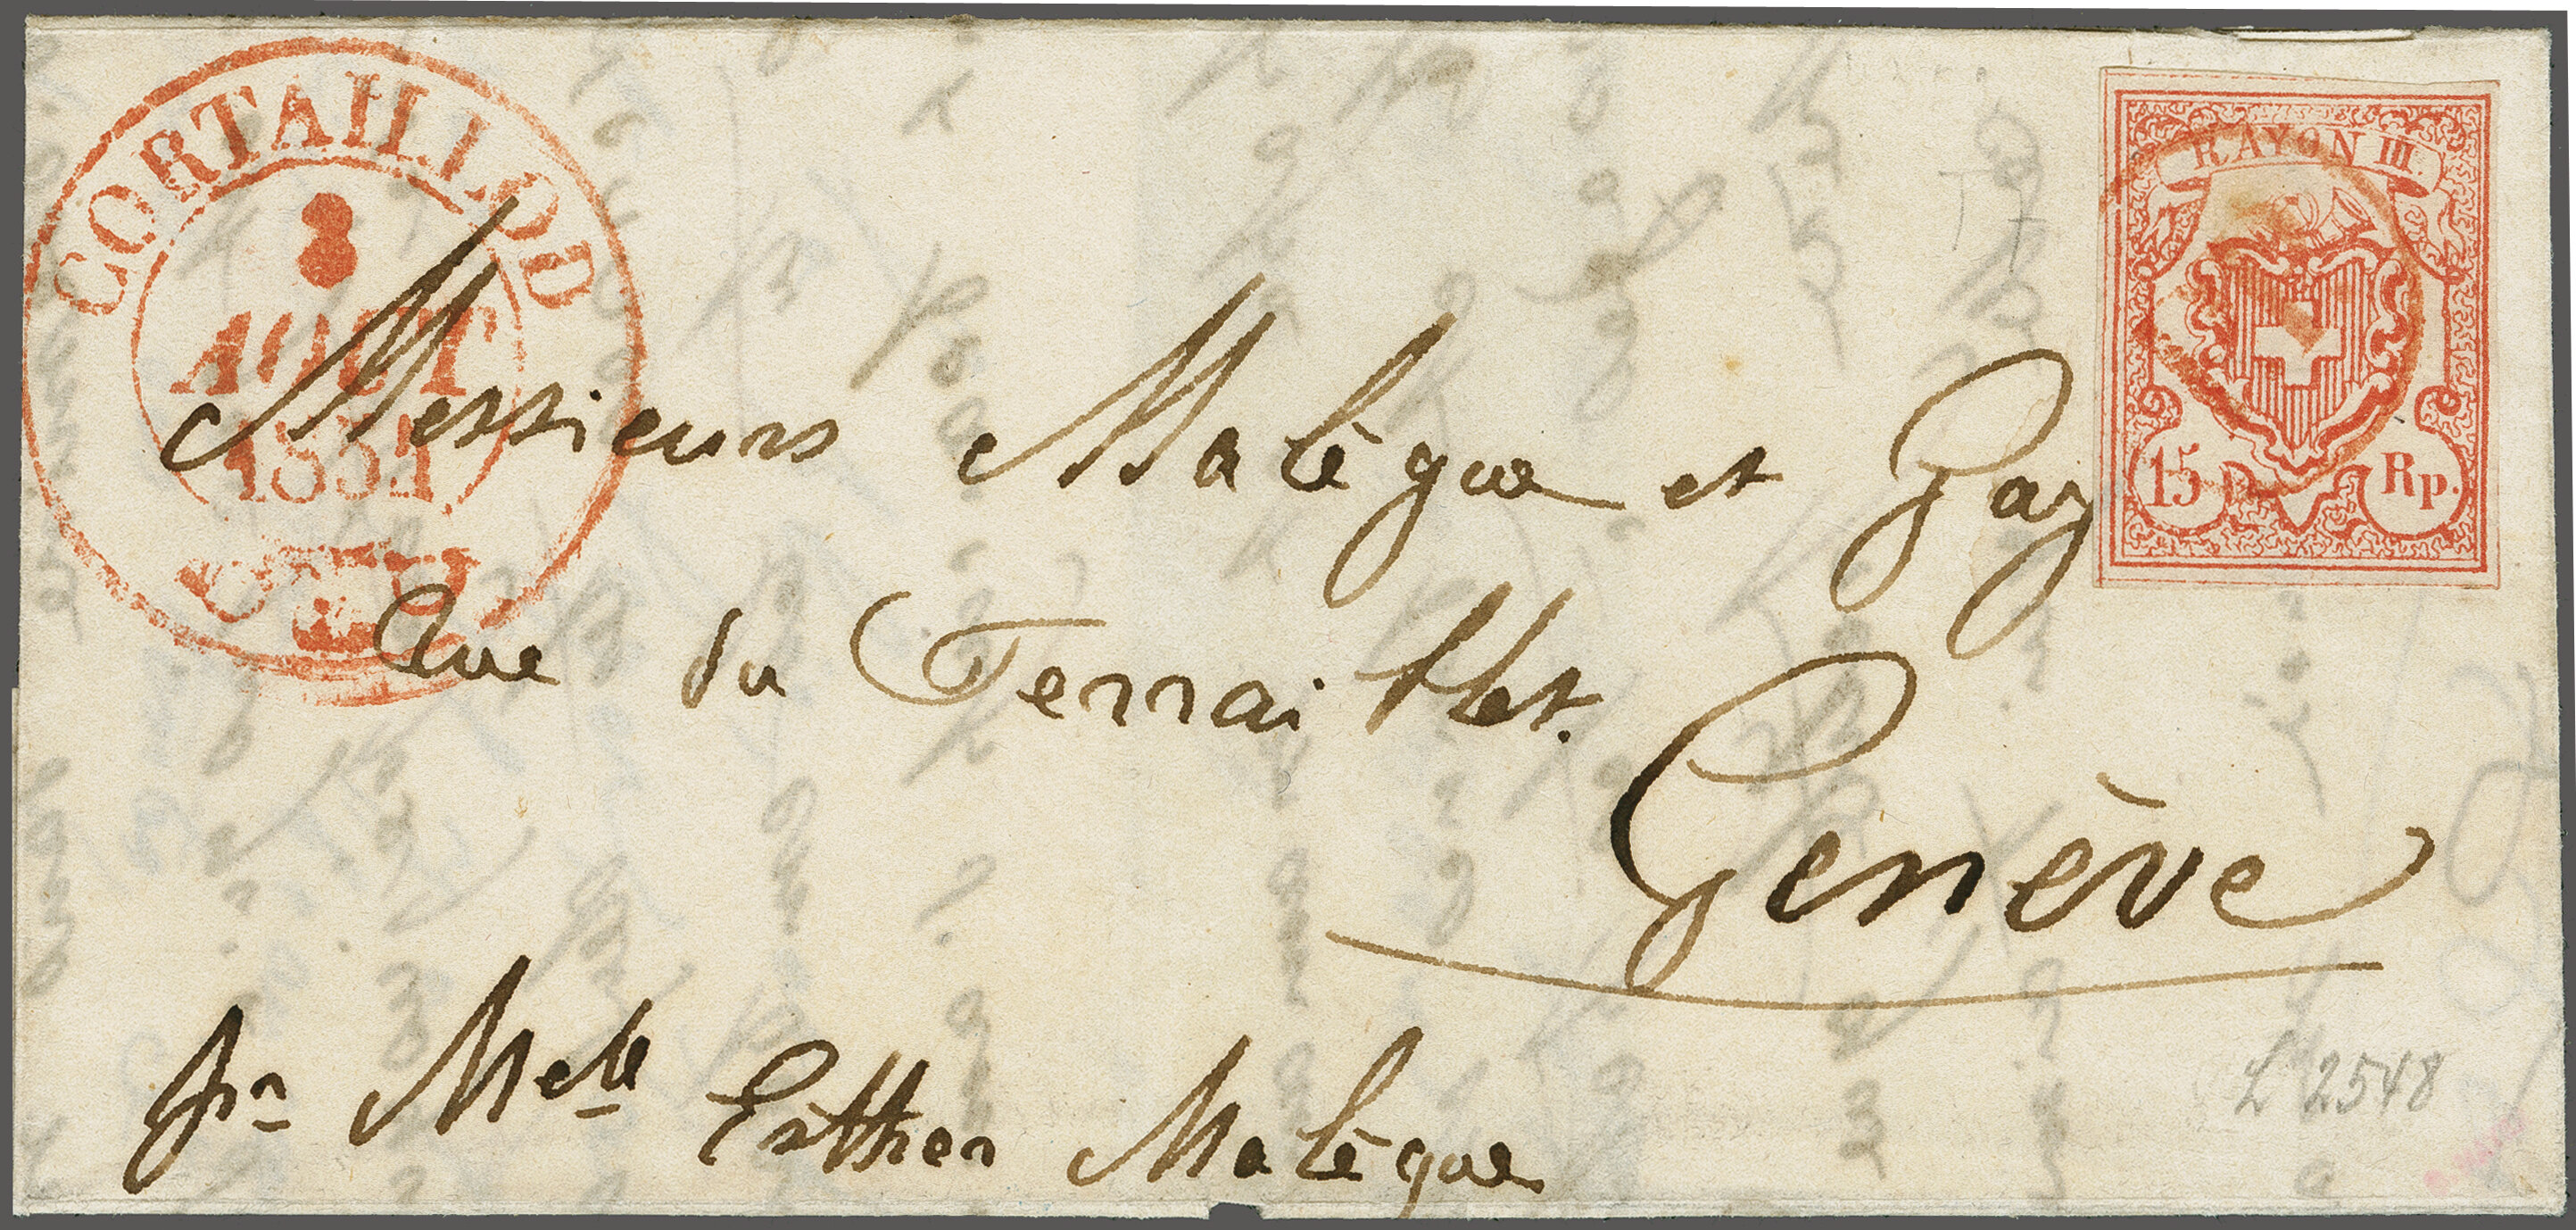 CORTAILLOD
8
AOUT
1852
RAYON III.
15 Rp.
Messieurs Malègue et Gay
Rue du Terraillet.
Genève
pr Melle Esther Malègue
L 2548